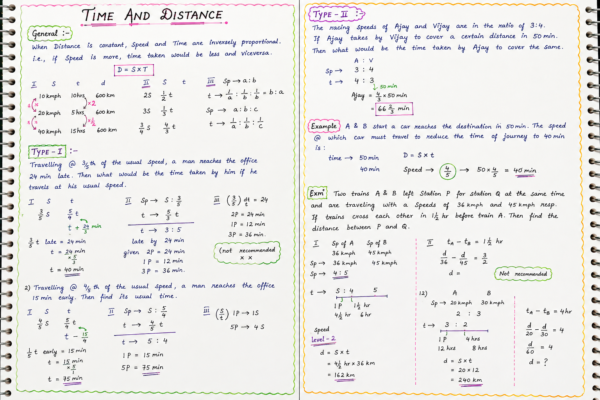 TIME AND DISTANCE
General :-
When Distance is constant, Speed and Time are inversely proportional.
i.e., if Speed is more, time taken would be less and viceversa.
D = S x T
I S t d
10 kmph 10hrs 600 km
20 kmph 5 hrs 600 km
40 kmph 15hrs 600 km
x2
II S t
2S 1/2 t
3S 1/3 t
3/4 S 4/3 t
III Sp → a:b
t → 1/a : 1/b = b:a
Sp → a:b:c
t → 1/a : 1/b : 1/c
TYPE-I :-
Travelling @ 3/5th of the usual speed, a man reaches the office
24 min late. Then what would be the time taken by him if he
travels at his usual speed.
I S t
3/5 S 5/3 t
t + 24 min
t late = 24 min
t = 40 min
II Sp → S : 3/5
t → 5/3 t
t → 3:5
late by 24 min
given 2P = 24 min
1P = 12 min
3P = 36 min.
= 24
2P = 24 min
1P = 12 min
3P = 36 min.
(not recommended
x x
2) Travelling @ 4/5th of the usual speed, a man reaches the office
15 min early. Then find its usual time.
I S t
4/5 S 5/4 t
t early = 15 min
t = 75 min
II Sp → S : 4/5
t → 5/4 t
t → 5 : 4
1P = 15 min
5P = 75 min
III 1P → 15
5P → 4 S
TYPE-II :-
The racing Speeds of Ajay and Vijay are in the ratio of 3:4.
If Ajay takes by Vijay to cover a certain distance in 50 min.
Then what would be the time taken by Ajay to cover the same.
A : V
Sp → 3 : 4
t → 4 : 3
50 min
Ajay = 4/3 x 50 min
= 66 2/3 min
Example A & B start a car reaches the destination in 50 min. The speed
@ which car must travel to reduce the time of journey to 40 min
is :
time → 50 min D = S x t
40 min Speed → 4/5 → 50 x 4/5 = 40 min
Exm' Two trains A & B left Station P for station Q at the same time
and are traveling with a Speeds of 36 kmph and 45 kmph resp.
If trains cross each other in 1 1/2 hr before train A. Then find the
distance between P and Q.
I Sp of A Sp of B
36 kmph 45 kmph
Sp → 36 kmph 45 kmph
Sp → 4:5
t → 5 : 4 5
1P 1 1/2 hr
4 1/2 hr 6 hr
Speed
level-2
d = S x t
= 4 1/2 hr x 36 km
= 162 km
II tA - tB = 1 1/2 hr
d/36 - d/45 = 3/2
d =
Not recommended
12) A B
Sp → 20 kmph 30 kmph
2 : 3
t → 3 : 2
1P 4 hrs
12 hrs 8 hrs
d = S x t
= 20 x 12
= 240 km
tA - tB = 4hr
d/20 - d/30 = 4
d/60 = 4
d = ?